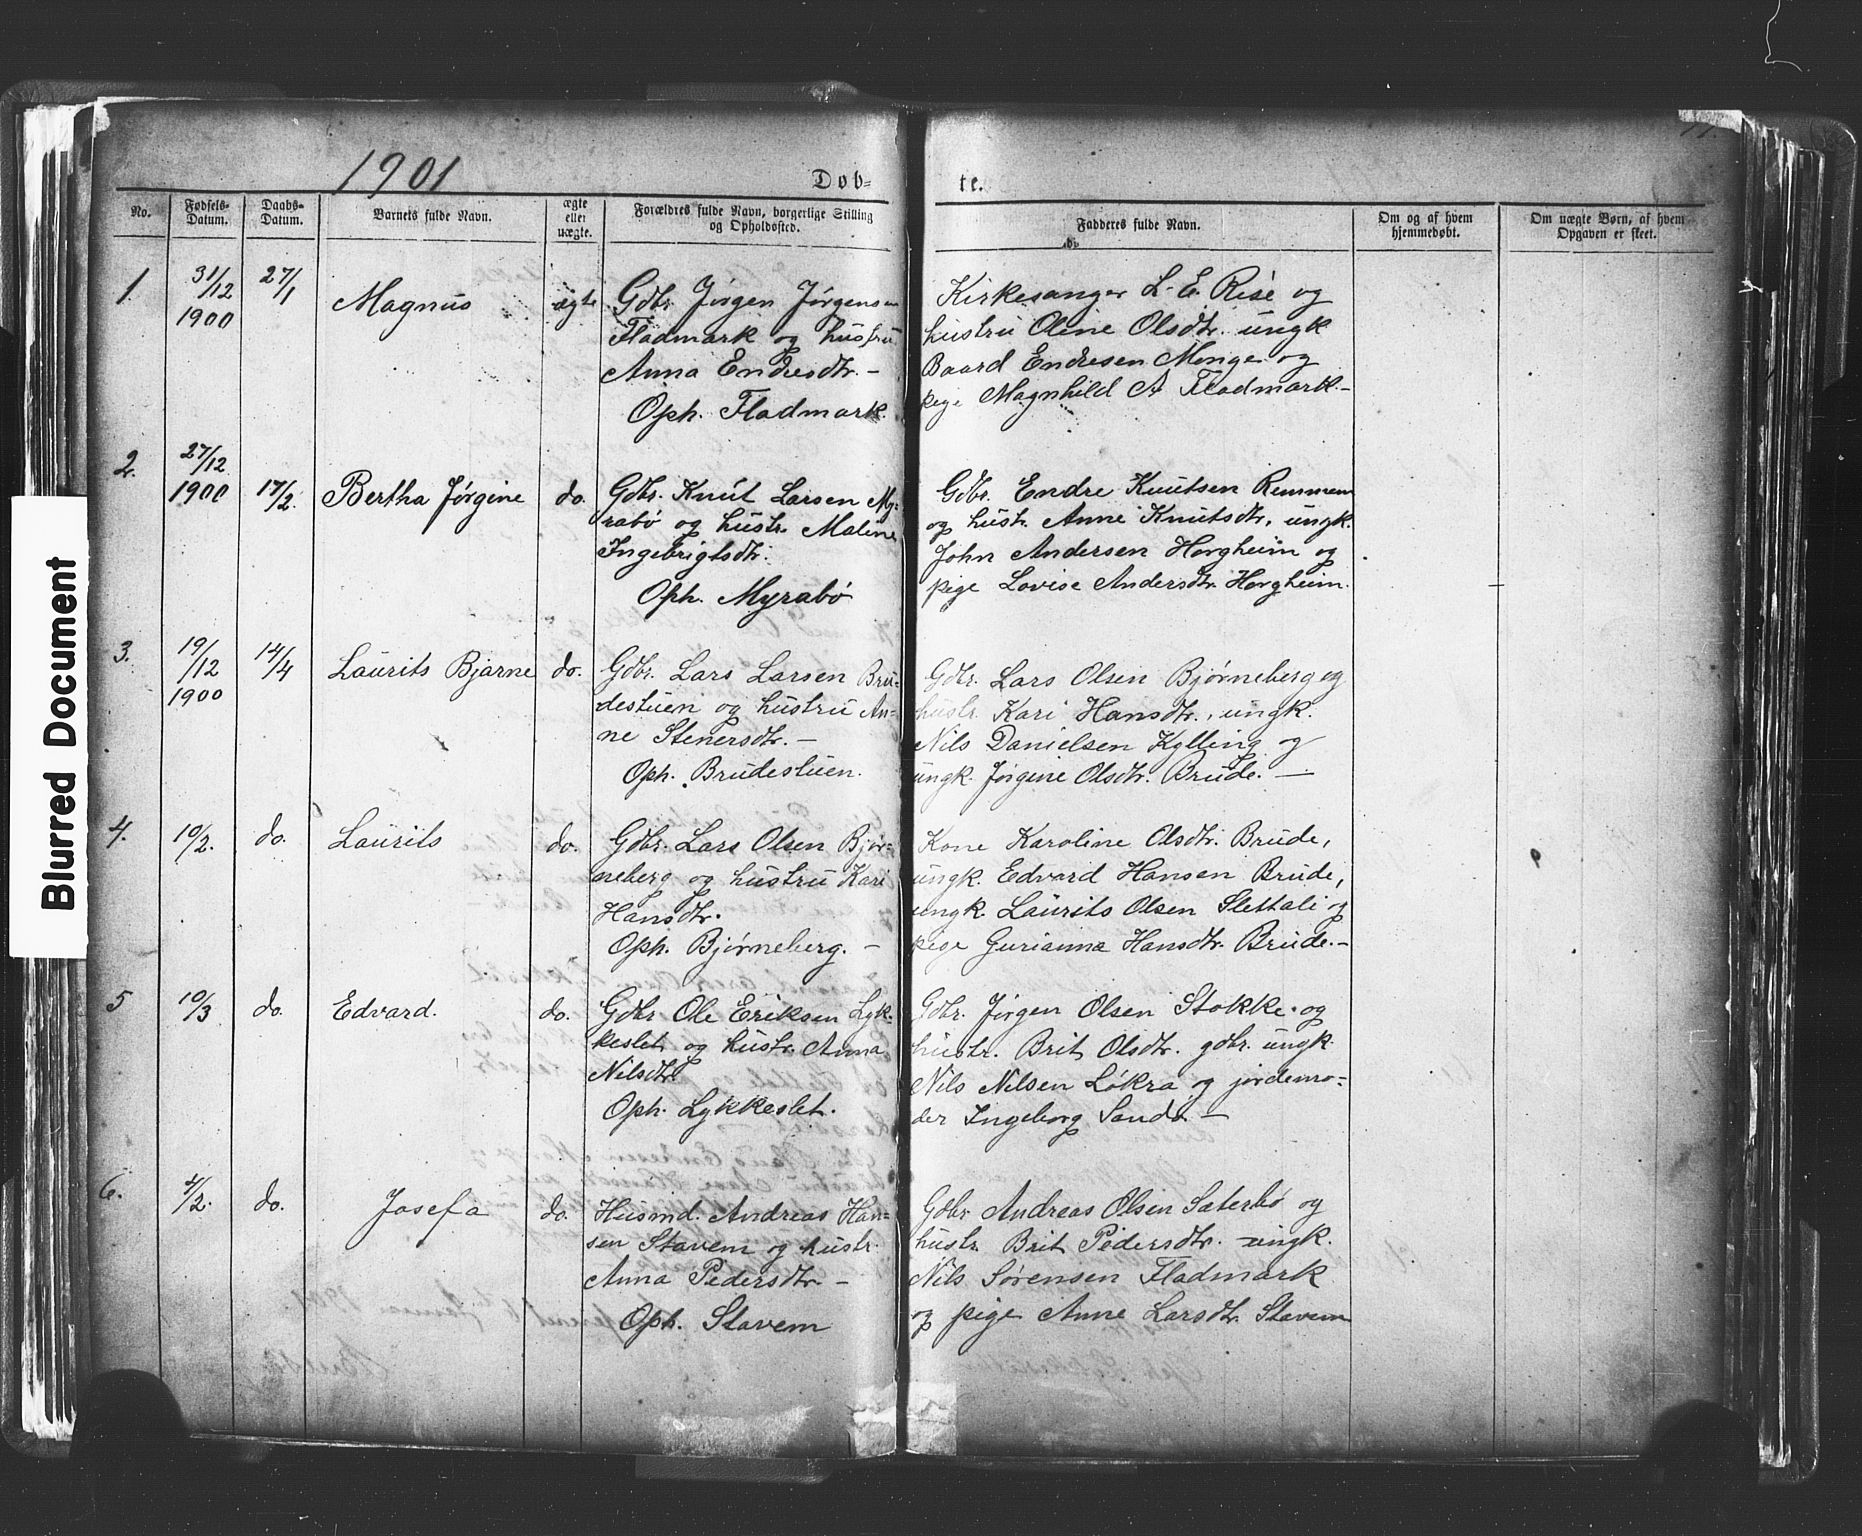 Blurred Document
1901
Døb-
te.
No.
Fødsels-
Datum.
Daabs-
Datum.
Barnets fulde Navn.
ægte
eller
uægte.
Forældres fulde Navn, borgerlige Stilling
og Opholdssted.
Fadderes fulde Navn.
Om og af hvem
hjemmedøbt.
Om uægte Børn, af hvem
Opgaven er skeet.
1.
31/12
1900
27/1
Magnus
ægte
Gdbr. Jørgen Jørgensen
Fladmark og hustru
Anna Endresdtr. -
Oph. Fladmark.
Kirkesanger L. E. Rise og
hustru Oline Olsdtr. ungk
Baard Endresen Monge og
pige Magnhild A Fladmark.-
2.
27/12
1900
17/2.
Bertha Jørgine
do.
Gdbr. Knut Larsen My-
rabø og hustr. Maline
Ingebrigtsdtr.
Oph. Myrabø
Gdbr. Endre Knutsen Remmem
og hustr. Anne Knutsdtr. ungk.
John Andersen Horgheim og
pige Lovise Andersdtr. Horgheim.
3.
19/12
1900
14/4
Laurits Bjarne
do.
Gdbr. Lars Larsen Bru-
destuen og hustru An-
ne Stenersdtr. -
Oph. Brudestuen.
Gdbr. Lars Olsen Bjørneberg og
hustr. Kari Hansdtr., ungk.
Nils Danielsen Kylling og
ungk. Jørgine Olsdtr. Brude. -
4.
10/2.
do.
Laurits
do.
Gdbr. Lars Olsen Bjør-
neberg og hustru Kari
Hansdtr.
Oph. Bjørneberg. -
Kone Karoline Olsdtr. Brude,
ungk. Edvard Hansen Brude,
ungk. Laurits Olsen Slettali og
pige Gurianna Hansdtr. Brude.-
5
10/3
do.
Edvard.
do.
Gdbr Ole Eriksen Lyk-
keslet og hustr. Anna
Nilsdtr.
Oph. Lykkeslet.
Gdbr. Jørgen Olsen Stokke. og
hustr. Brit Olsdtr. gdbr. ungk.
Nils Nilsen Løkra og jordemo-
der Ingeborg Sando -
6.
4/2.
do.
Josefa
do.
Husmd. Andreas Han-
sen Stavem og hustr.
Anna Pedersdtr. -
Oph. Stavem
Gdbr Andreas Olsen Sæterbø og
hustr. Brit Pedersdtr. ungk.
Nils Sørensen Fladmark
og pige Anne Larsdtr. Stavem